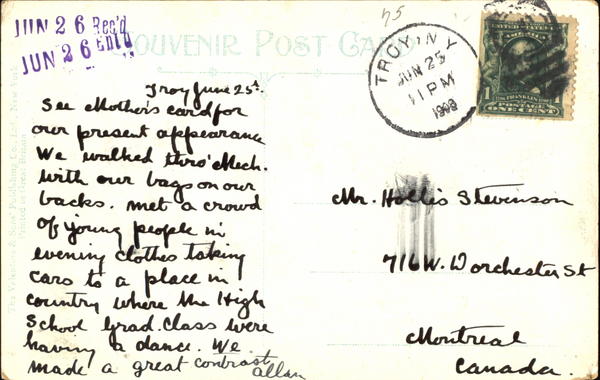 JUN 26 Rec'd
JUN 26 Ent'd
75
SOUVENIR POST CARD
TROY, N.Y.
JUN 25
11 PM
UNITED STATES OF AMERICA
FRANKLIN
1 1
POSTAGE
ONE CENT
Troy June 25th.
See Mother's card for
our present appearance
We walked thro' Mech.
with our bags on our
backs. met a crowd
of young people in
evening clothes taking
cars to a place in
country where the High
School Grad. Class were
having a dance. We
made a great contrast
allan
Mr. Hollis Stevenson
716 W. Dorchester St
Montreal
Canada.
Printed in Great Britain